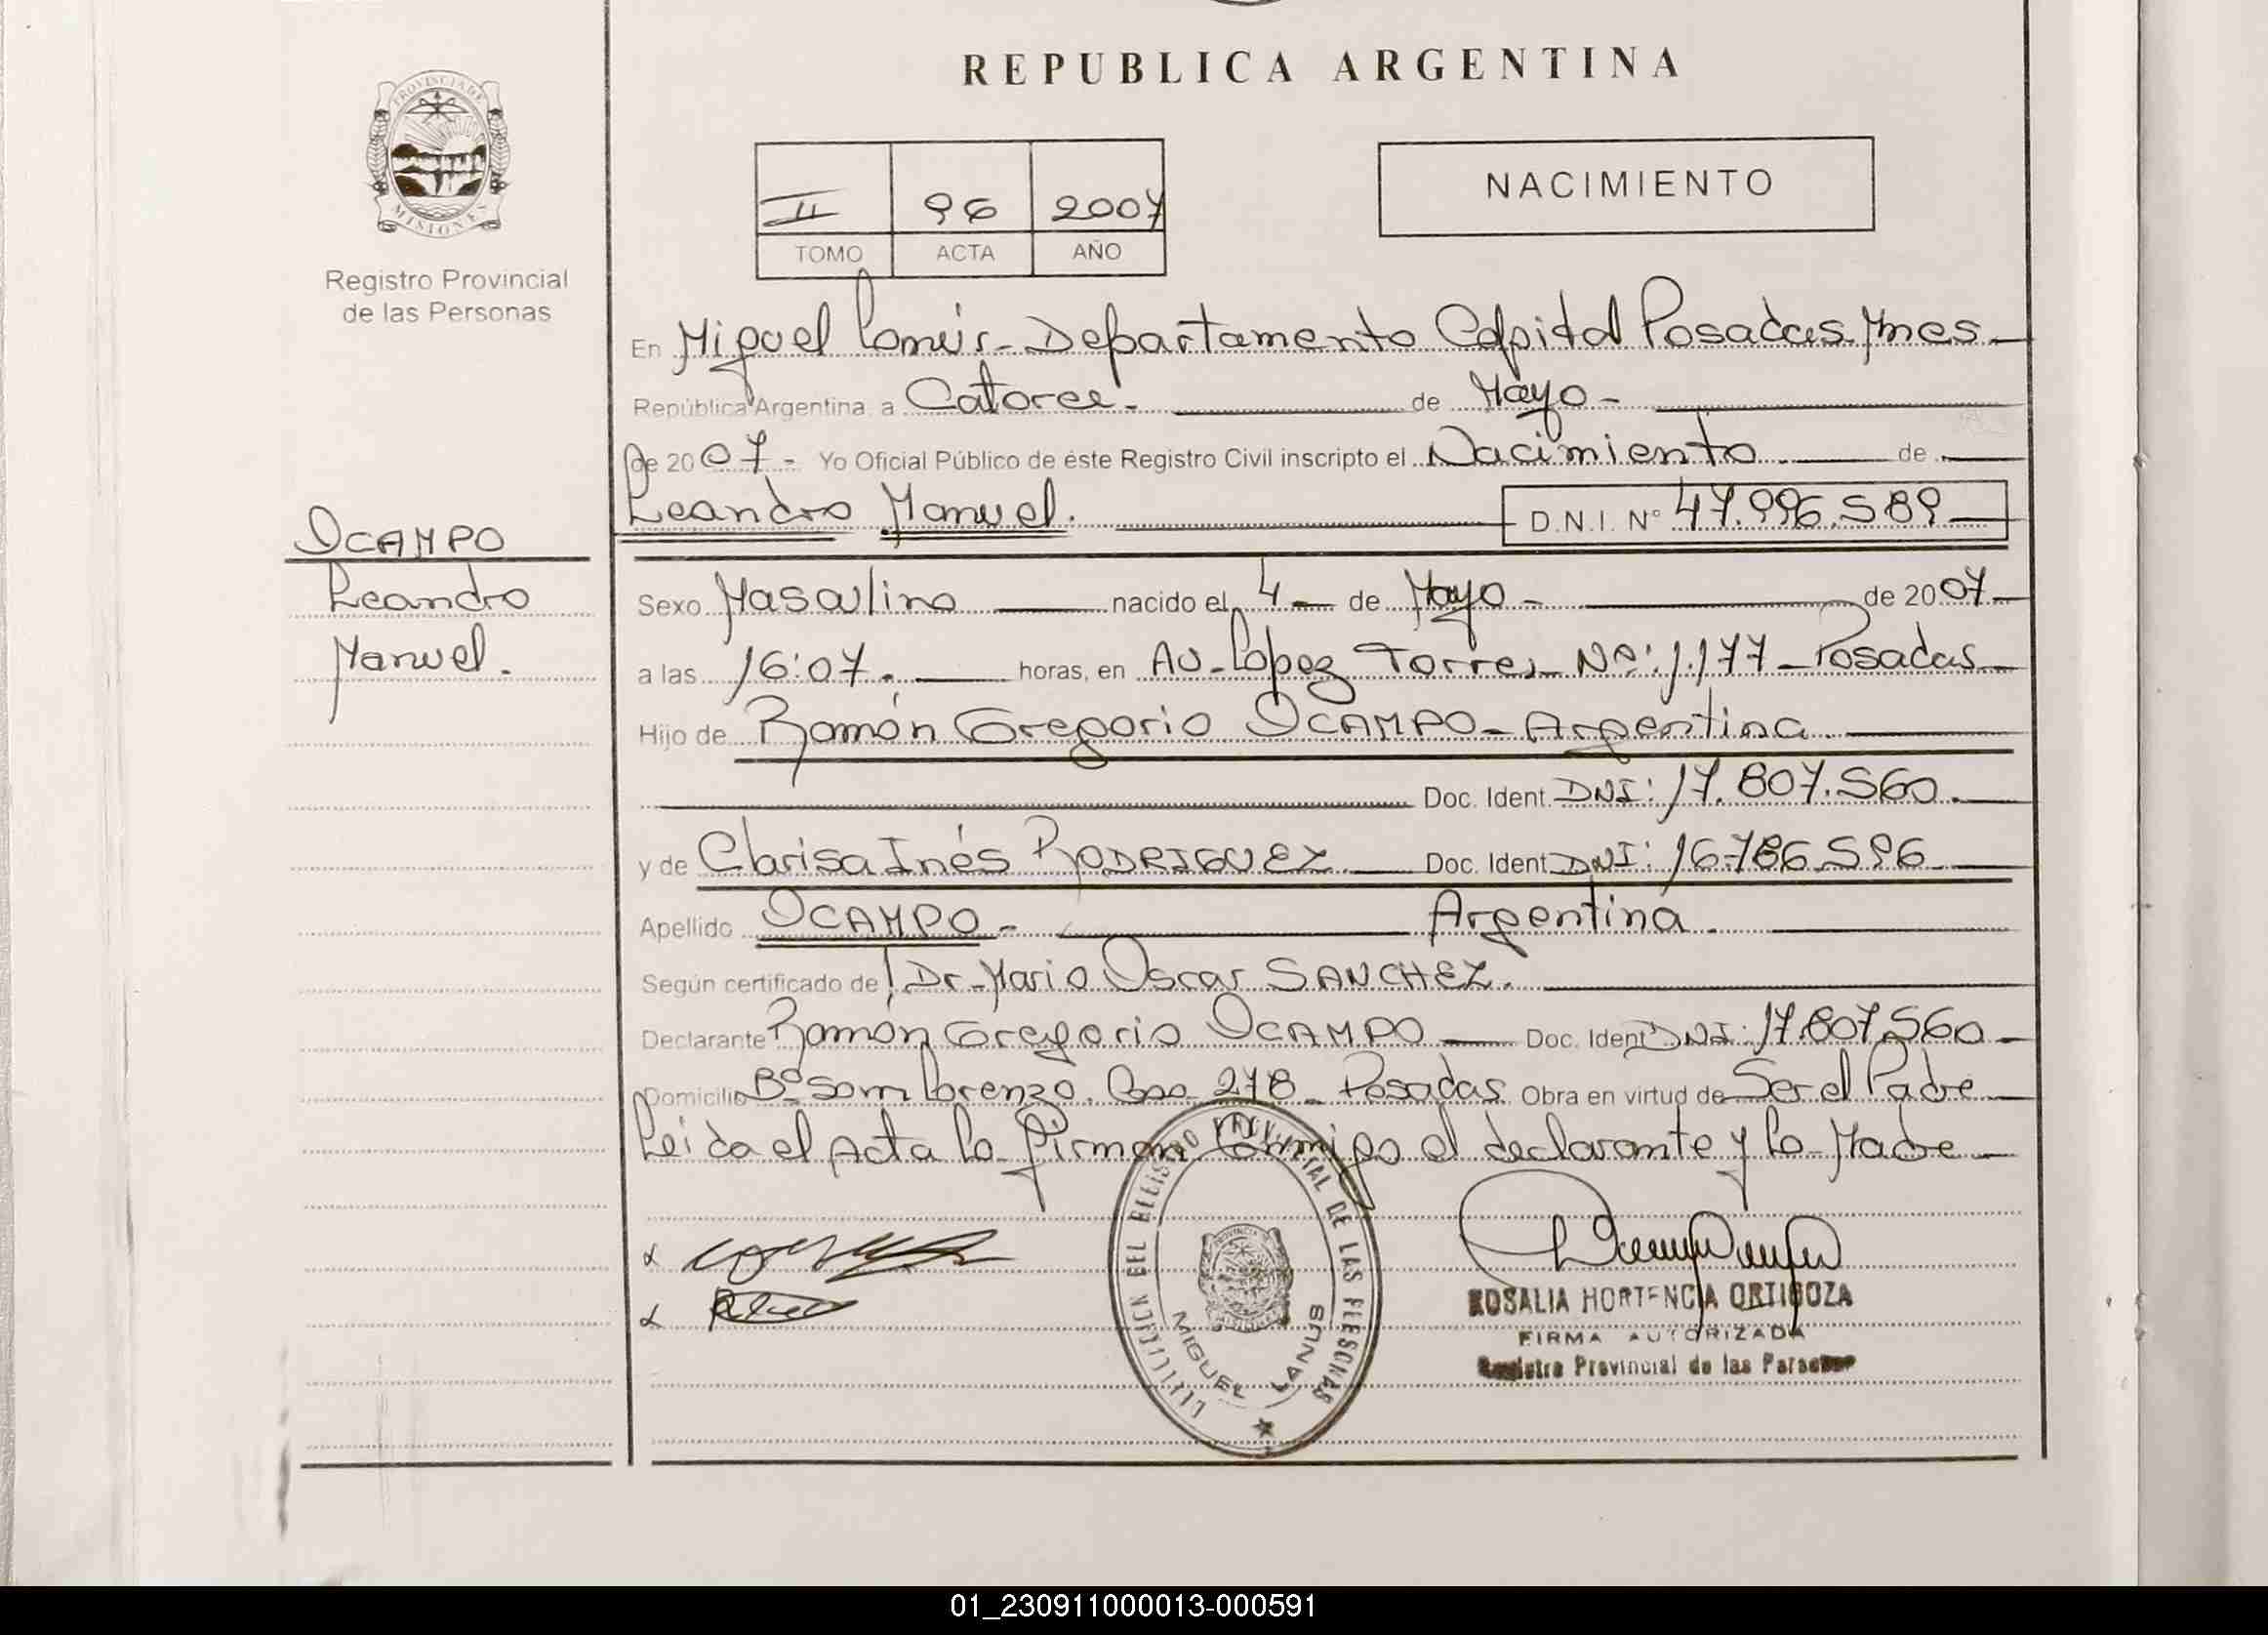 REPUBLICA ARGENTINA
PROVINCIA DE
MISIONES
Registro Provincial
de las Personas
II 96 2007
TOMO ACTA AÑO
NACIMIENTO
En Miguel Lanús - Departamento Capital Posadas Mnes -
República Argentina, a Catorce - de Mayo -
de 2007 - Yo Oficial Público de éste Registro Civil inscripto el Nacimiento de
Leandro Manuel. D.N.I. N° 47.996.589
OCAMPO
Leandro
Manuel.
Sexo Masculino nacido el 4 - de Mayo - de 2007 -
a las 16:07. horas, en Av. López Torres - Nº: 1.177 - Posadas
Hijo de Ramón Gregorio OCAMPO - Argentina
Doc. Ident. DNI: 17.807.560.
y de Clarisa Inés RODRIGUEZ Doc. Ident. DNI: 16.786.596
Apellido OCAMPO - Argentina.
Según certificado de Dr. Mario Oscar SANCHEZ.
Declarante Ramón Gregorio OCAMPO Doc. Ident. DNI: 17.807.560 -
Domicilio Bº San Lorenzo. Casa 278 - Posadas Obra en virtud de Ser el Padre
Leída el Acta la firman Conmigo el declarante y la Madre -
REGISTRO PROVINCIAL DE LAS PERSONAS
MIGUEL LANUS
ROSALIA HORTENCIA ORTIGOZA
FIRMA AUTORIZADA
Registro Provincial de las Personas
01_230911000013-000591